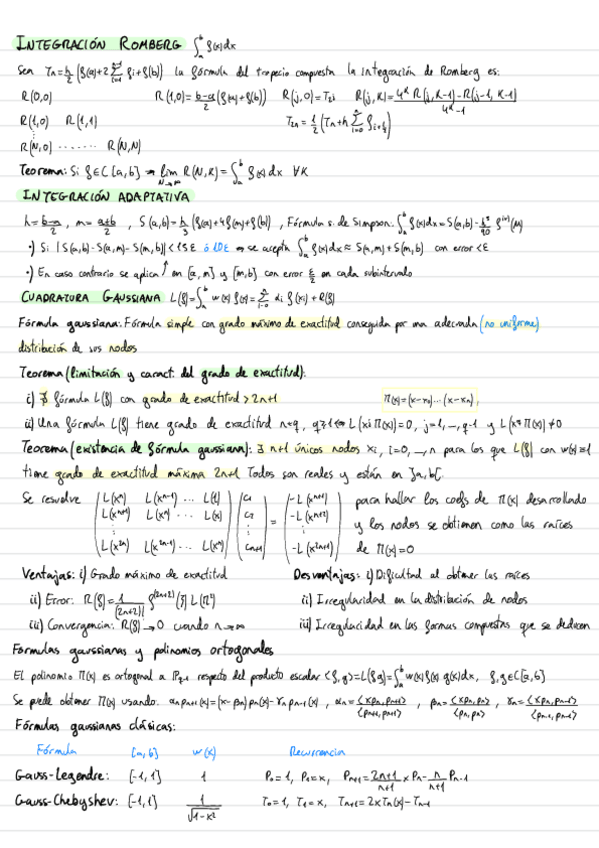 INTEGRACIÓN ROMBERG ∫_a^b f(x)dx
Sea Tn = h/2 (f(a)+2 Σ_{i=1}^{n-1} fi + f(b)) la fórmula del trapecio compuesta la integración de Romberg es:
R(0,0) R(1,0) = b-a/2 (f(a)+f(b)) R(j,0) = T_{2^j} R(j,K) = 4^K R(j,K-1) - R(j-1,K-1) / 4^K - 1
R(1,0) R(1,1) T2n = 1/2 (Tn + h Σ_{i=0} f_{i+1/2})
⋮
R(N,0) ....... R(N,N)
Teorema: Si f∈C[a,b] ⇒ lim_{N→∞} R(N,K) = ∫_a^b f(x)dx ∀K
INTEGRACIÓN ADAPTATIVA
h = b-a/2, m = a+b/2, S(a,b) = h/3 (f(a)+4f(m)+f(b)), Fórmula s. de Simpson: ∫_a^b f(x)dx = S(a,b) - h^5/90 f^{(iv)}(μ)
·) Si |S(a,b)-S(a,m)-S(m,b)| < 15ε ó 10ε ⇒ se acepta ∫_a^b f(x)dx ≈ S(a,m)+S(m,b) con error < ε
·) En caso contrario se aplica ↑ en [a,m] y [m,b] con error ε/2 en cada subintervalo
CUADRATURA GAUSSIANA L(f) = ∫_a^b w(x) f(x) = Σ_{i=0}^n αi f(xi) + R(f)
Fórmula gaussiana: Fórmula simple con grado máximo de exactitud conseguida por una adecuada (no uniforme)
distribución de sus nodos
Teorema (limitación y caract. del grado de exactitud):
i) ∄ fórmula L(f) con grado de exactitud > 2n+1 Π(x) = (x-x0)...(x-xn)
ii) Una fórmula L(f) tiene grado de exactitud n+q, q≥1 ⇔ L(x^j Π(x)) = 0, j=1,...,q-1 y L(x^q Π(x)) ≠ 0
Teorema (existencia de fórmula gaussiana): ∃ n+1 únicos nodos xi, i=0,...,n para los que L(f) con w(x)≡1
tiene grado de exactitud máxima 2n+1 Todos son reales y están en ]a,b[.
Se resuelve ( L(x^n) L(x^{n-1}) ... L(1) ) ( c1 ) = ( -L(x^{n+1}) ) para hallar los coefs de Π(x) desarrollado
( L(x^{n+1}) L(x^n) ... L(x) ) ( c2 ) ( -L(x^{n+2}) ) y los nodos se obtienen como las raíces
( ⋮ ) ( ⋮ ) ( ⋮ )
( L(x^{2n}) L(x^{2n-1}) ... L(x^n) ) ( cn+1 ) ( -L(x^{2n+1}) ) de Π(x)=0
Ventajas: i) Grado máximo de exactitud Desventajas: i) Dificultad al obtener las raíces
ii) Error: R(f) = 1/(2n+2)! f^{(2n+2)}(ξ) L(Π²) ii) Irregularidad en la distribución de nodos
iii) Convergencia: R(f) → 0 cuando n→∞ iii) Irregularidad en las formas compuestas que se deducen
Fórmulas gaussianas y polinomios ortogonales
El polinomio Π(x) es ortogonal a P_{q-1} respecto del producto escalar <f,g> = L(fg) = ∫_a^b w(x)f(x) g(x)dx, f,g∈C[a,b]
Se puede obtener Π(x) usando: αn pn+1(x) = (x-βn)pn(x) - γn pn-1(x), αn = <xpn,pn+1>/<pn+1,pn+1>, βn = <xpn,pn>/<pn,pn>, γn = <xpn,pn-1>/<pn-1,pn-1>
Fórmulas gaussianas clásicas:
Fórmula [a,b] w(x) Recurrencia
Gauss-Legendre: [-1,1] 1 P0=1, P1=x, Pn+1 = 2n+1/n+1 xPn - n/n+1 Pn-1
Gauss-Chebyshev: [-1,1] 1/√(1-x²) T0=1, T1=x, Tn+1 = 2xTn(x) - Tn-1